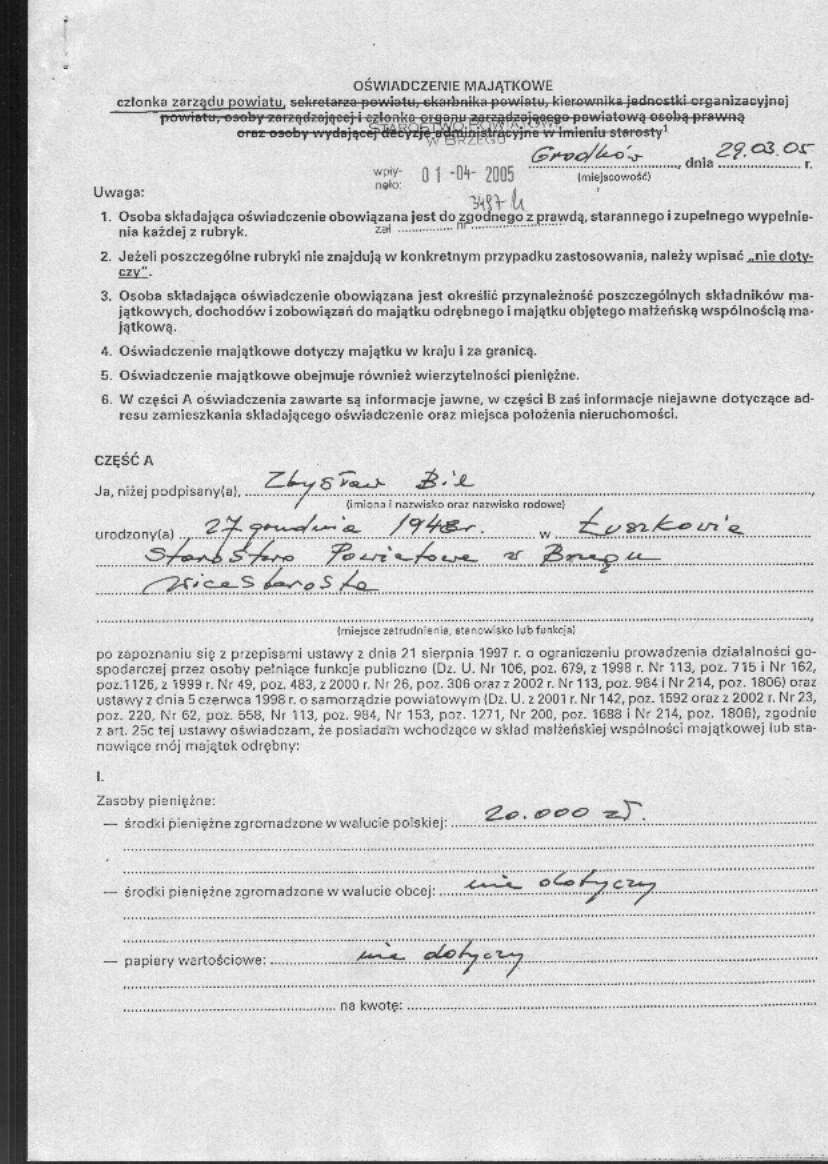 OŚWIADCZENIE MAJĄTKOWE
członka zarządu powiatu, sekretarza powiatu, skarbnika powiatu, kierownika jednostki organizacyjnej
powiatu, osoby zarządzającej i członka organu zarządzającego powiatową osobą prawną
oraz osoby wydającej decyzje administracyjne w imieniu starosty¹
W BRZEGU
Grodków, dnia 29.03.05 r.
(miejscowość)
wpły-
nęło: 01 -04- 2005
Uwaga:
zał nr
1. Osoba składająca oświadczenie obowiązana jest do zgodnego z prawdą, starannego i zupełnego wypełnie-
nia każdej z rubryk.
2. Jeżeli poszczególne rubryki nie znajdują w konkretnym przypadku zastosowania, należy wpisać „nie doty-
czy".
3. Osoba składająca oświadczenie obowiązana jest określić przynależność poszczególnych składników ma-
jątkowych, dochodów i zobowiązań do majątku odrębnego i majątku objętego małżeńską wspólnością ma-
jątkową.
4. Oświadczenie majątkowe dotyczy majątku w kraju i za granicą.
5. Oświadczenie majątkowe obejmuje również wierzytelności pieniężne.
6. W części A oświadczenia zawarte są informacje jawne, w części B zaś informacje niejawne dotyczące ad-
resu zamieszkania składającego oświadczenie oraz miejsca położenia nieruchomości.
CZĘŚĆ A
Ja, niżej podpisany(a), Zbysław Bil,
(imiona i nazwisko oraz nazwisko rodowe)
urodzony(a) 27 grudnia 1948r. w Łuszkowie
Starostwo Powiatowe w Brzegu
Wicestarosta
(miejsce zatrudnienia, stanowisko lub funkcja)
po zapoznaniu się z przepisami ustawy z dnia 21 sierpnia 1997 r. o ograniczeniu prowadzenia działalności go-
spodarczej przez osoby pełniące funkcje publiczne (Dz. U. Nr 106, poz. 679, z 1998 r. Nr 113, poz. 715 i Nr 162,
poz.1126, z 1999 r. Nr 49, poz. 483, z 2000 r. Nr 26, poz. 306 oraz z 2002 r. Nr 113, poz. 984 i Nr 214, poz. 1806) oraz
ustawy z dnia 5 czerwca 1998 r. o samorządzie powiatowym (Dz. U. z 2001 r. Nr 142, poz. 1592 oraz z 2002 r. Nr 23,
poz. 220, Nr 62, poz. 558, Nr 113, poz. 984, Nr 153, poz. 1271, Nr 200, poz. 1688 i Nr 214, poz. 1806), zgodnie
z art. 25c tej ustawy oświadczam, że posiadam wchodzące w skład małżeńskiej wspólności majątkowej lub sta-
nowiące mój majątek odrębny:
I.
Zasoby pieniężne:
— środki pieniężne zgromadzone w walucie polskiej: 20.000 zł.
— środki pieniężne zgromadzone w walucie obcej: nie dotyczy
— papiery wartościowe: nie dotyczy
na kwotę: